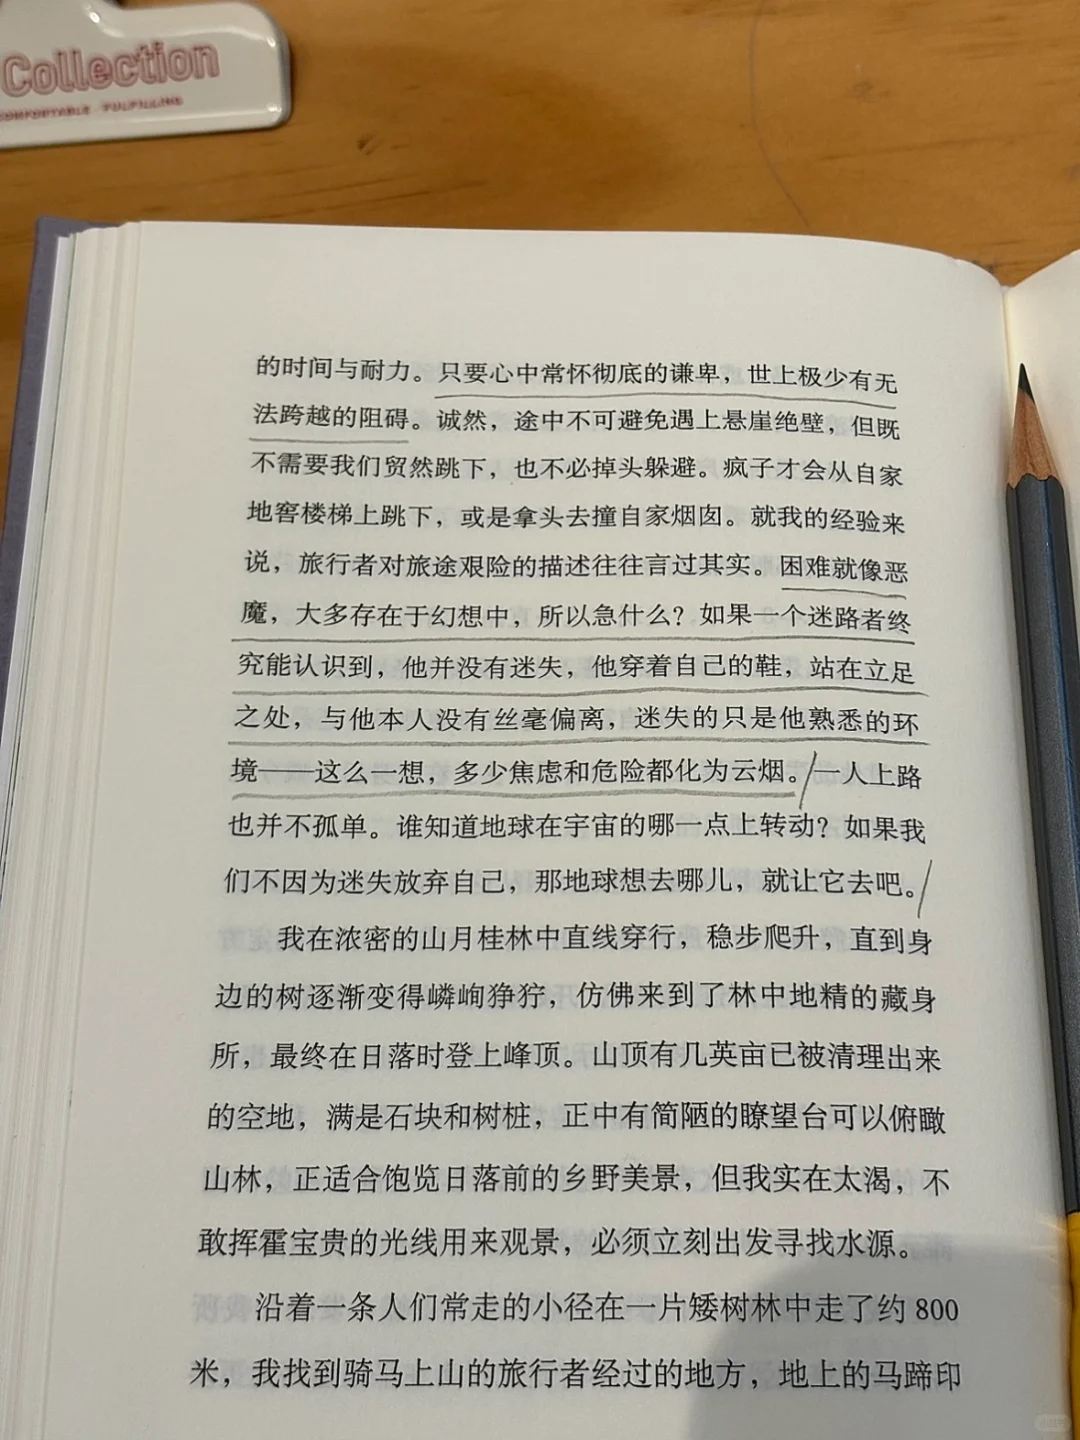 Collection
COMFORTABLE · FULFILLING
的时间与耐力。只要心中常怀彻底的谦卑，世上极少有无
法跨越的阻碍。诚然，途中不可避免遇上悬崖绝壁，但既
不需要我们贸然跳下，也不必掉头躲避。疯子才会从自家
地窖楼梯上跳下，或是拿头去撞自家烟囱。就我的经验来
说，旅行者对旅途艰险的描述往往言过其实。困难就像恶
魔，大多存在于幻想中，所以急什么？如果一个迷路者终
究能认识到，他并没有迷失，他穿着自己的鞋，站在立足
之处，与他本人没有丝毫偏离，迷失的只是他熟悉的环
境——这么一想，多少焦虑和危险都化为云烟。一人上路
也并不孤单。谁知道地球在宇宙的哪一点上转动？如果我
们不因为迷失放弃自己，那地球想去哪儿，就让它去吧。
我在浓密的山月桂林中直线穿行，稳步爬升，直到身
边的树逐渐变得嶙峋狰狞，仿佛来到了林中地精的藏身
所，最终在日落时登上峰顶。山顶有几英亩已被清理出来
的空地，满是石块和树桩，正中有简陋的瞭望台可以俯瞰
山林，正适合饱览日落前的乡野美景，但我实在太渴，不
敢挥霍宝贵的光线用来观景，必须立刻出发寻找水源。
沿着一条人们常走的小径在一片矮树林中走了约 800
米，我找到骑马上山的旅行者经过的地方，地上的马蹄印